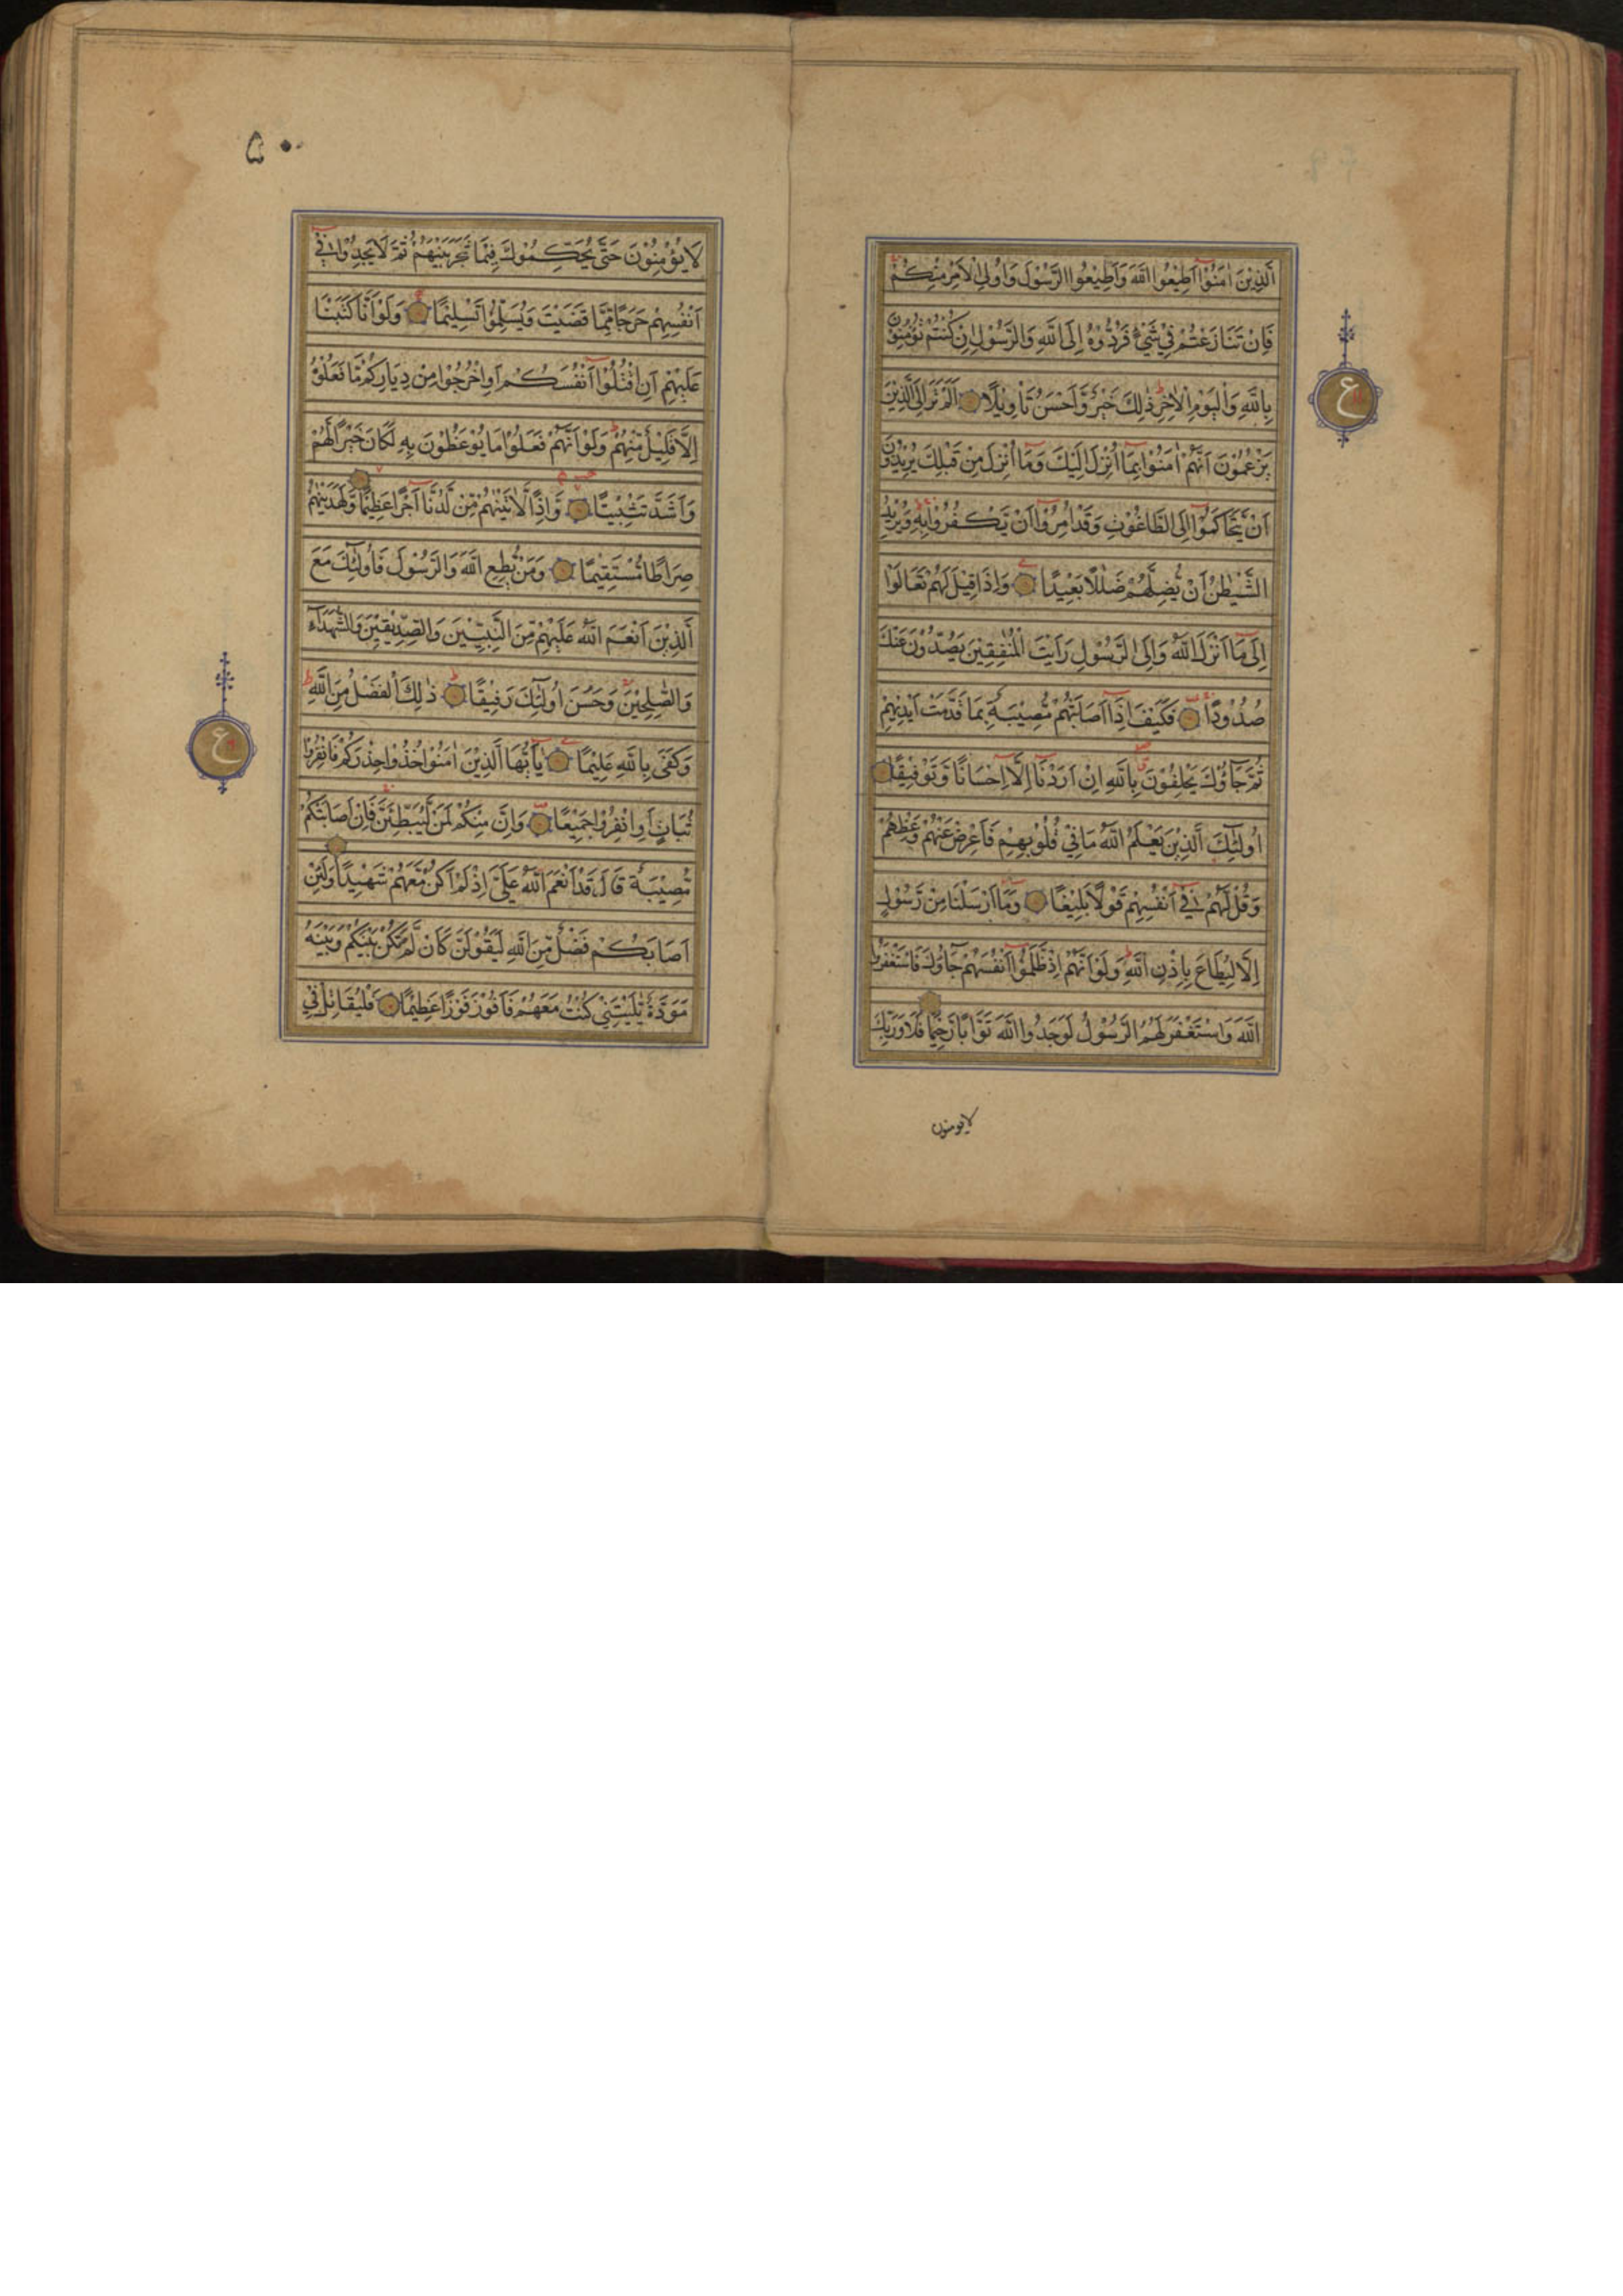 الَّذِيْنَ اٰمَنُوْا اَطِيْعُوا اللّٰهَ وَاَطِيْعُوا الرَّسُوْلَ وَاُولِى الْاَمْرِ مِنْكُمْ
فَاِنْ تَنَازَعْتُمْ فِيْ شَيْءٍ فَرُدُّوْهُ اِلَى اللّٰهِ وَالرَّسُوْلِ اِنْ كُنْتُمْ تُؤْمِنُوْنَ
بِاللّٰهِ وَالْيَوْمِ الْاٰخِرِ ط ذٰلِكَ خَيْرٌ وَّاَحْسَنُ تَاْوِيْلًا اَلَمْ تَرَ اِلَى الَّذِيْنَ
يَزْعُمُوْنَ اَنَّهُمْ اٰمَنُوْا بِمَا اُنْزِلَ اِلَيْكَ وَمَا اُنْزِلَ مِنْ قَبْلِكَ يُرِيْدُوْنَ
اَنْ يَّتَحَاكَمُوْا اِلَى الطَّاغُوْتِ وَقَدْ اُمِرُوْا اَنْ يَّكْفُرُوْا بِهٖ وَيُرِيْدُ
الشَّيْطٰنُ اَنْ يُّضِلَّهُمْ ضَلٰلًا بَعِيْدًا وَاِذَا قِيْلَ لَهُمْ تَعَالَوْا
اِلٰى مَا اَنْزَلَ اللّٰهُ وَاِلَى الرَّسُوْلِ رَاَيْتَ الْمُنٰفِقِيْنَ يَصُدُّوْنَ عَنْكَ
صُدُوْدًا فَكَيْفَ اِذَا اَصَابَتْهُمْ مُّصِيْبَةٌ بِمَا قَدَّمَتْ اَيْدِيْهِمْ
ثُمَّ جَآؤُكَ يَحْلِفُوْنَ بِاللّٰهِ اِنْ اَرَدْنَا اِلَّا اِحْسَانًا وَّتَوْفِيْقًا
اُولٰئِكَ الَّذِيْنَ يَعْلَمُ اللّٰهُ مَا فِيْ قُلُوْبِهِمْ فَاَعْرِضْ عَنْهُمْ وَعِظْهُمْ
وَقُلْ لَّهُمْ فِيْ اَنْفُسِهِمْ قَوْلًا بَلِيْغًا وَمَا اَرْسَلْنَا مِنْ رَّسُوْلٍ
اِلَّا لِيُطَاعَ بِاِذْنِ اللّٰهِ ط وَلَوْ اَنَّهُمْ اِذْ ظَّلَمُوْا اَنْفُسَهُمْ جَآؤُكَ فَاسْتَغْفَرُوا
اللّٰهَ وَاسْتَغْفَرَ لَهُمُ الرَّسُوْلُ لَوَجَدُوا اللّٰهَ تَوَّابًا رَّحِيْمًا فَلَا وَرَبِّكَ
لايومنون
ع
۵۰
لَا يُؤْمِنُوْنَ حَتّٰى يُحَكِّمُوْكَ فِيْمَا شَجَرَ بَيْنَهُمْ ثُمَّ لَا يَجِدُوْا فِيْ
اَنْفُسِهِمْ حَرَجًا مِّمَّا قَضَيْتَ وَيُسَلِّمُوْا تَسْلِيْمًا وَلَوْ اَنَّا كَتَبْنَا
عَلَيْهِمْ اَنِ اقْتُلُوْا اَنْفُسَكُمْ اَوِ اخْرُجُوْا مِنْ دِيَارِكُمْ مَّا فَعَلُوْهُ
اِلَّا قَلِيْلٌ مِّنْهُمْ ط وَلَوْ اَنَّهُمْ فَعَلُوْا مَا يُوْعَظُوْنَ بِهٖ لَكَانَ خَيْرًا لَّهُمْ
وَاَشَدَّ تَثْبِيْتًا وَّاِذًا لَّاٰتَيْنٰهُمْ مِّنْ لَّدُنَّا اَجْرًا عَظِيْمًا وَّلَهَدَيْنٰهُمْ
صِرَاطًا مُّسْتَقِيْمًا وَمَنْ يُّطِعِ اللّٰهَ وَالرَّسُوْلَ فَاُولٰئِكَ مَعَ
الَّذِيْنَ اَنْعَمَ اللّٰهُ عَلَيْهِمْ مِّنَ النَّبِيّٖنَ وَالصِّدِّيْقِيْنَ وَالشُّهَدَآءِ
وَالصّٰلِحِيْنَ وَحَسُنَ اُولٰئِكَ رَفِيْقًا ط ذٰلِكَ الْفَضْلُ مِنَ اللّٰهِ ط
وَكَفٰى بِاللّٰهِ عَلِيْمًا يٰاَيُّهَا الَّذِيْنَ اٰمَنُوْا خُذُوْا حِذْرَكُمْ فَانْفِرُوْا
ثُبَاتٍ اَوِ انْفِرُوْا جَمِيْعًا وَاِنَّ مِنْكُمْ لَمَنْ لَّيُبَطِّئَنَّ فَاِنْ اَصَابَتْكُمْ
مُّصِيْبَةٌ قَالَ قَدْ اَنْعَمَ اللّٰهُ عَلَيَّ اِذْ لَمْ اَكُنْ مَّعَهُمْ شَهِيْدًا وَلَئِنْ
اَصَابَكُمْ فَضْلٌ مِّنَ اللّٰهِ لَيَقُوْلَنَّ كَاَنْ لَّمْ تَكُنْ بَيْنَكُمْ وَبَيْنَهٗ
مَوَدَّةٌ يّٰلَيْتَنِيْ كُنْتُ مَعَهُمْ فَاَفُوْزَ فَوْزًا عَظِيْمًا فَلْيُقَاتِلْ فِيْ
ع